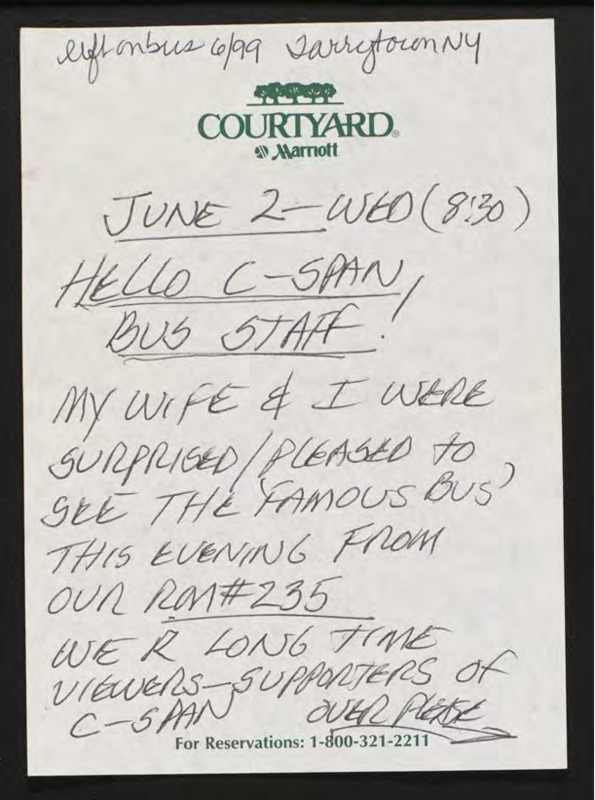 left on bus 6/99 Tarrytown NY
COURTYARD®
Marriott
JUNE 2-WED (8:30)
HELLO C-SPAN
BUS STAFF!
MY WIFE & I WERE
SURPRISED/PLEASED TO
SEE THE 'FAMOUS BUS'
THIS EVENING FROM
OUR RM#235
WE R LONG TIME
VIEWERS-SUPPORTERS OF
C-SPAN OVER PLEASE
For Reservations: 1-800-321-2211